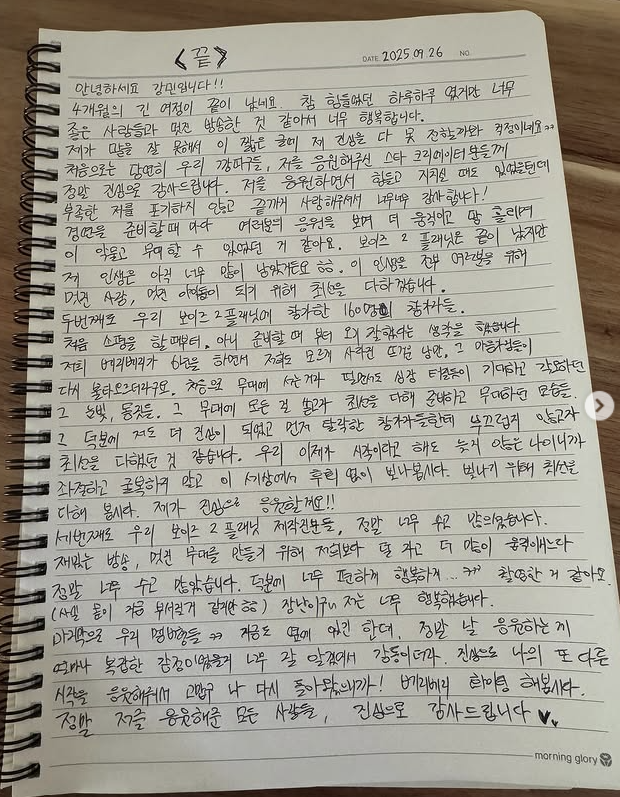 <끝>
DATE 2025.09.26 NO.
안녕하세요 강민입니다!!
4개월의 긴 여정이 끝이 났네요. 참 힘들었던 하루하루 였지만 너무
좋은 사람들과 멋진 방송한 것 같아서 너무 행복합니다.
제가 말을 잘 못해서 이 짧은 글에 제 진심을 다 못 전할까봐 걱정이네요ㅠㅠ
처음으로는 당연히 우리 깡따구들, 저를 응원해주신 스타 크리에이터 분들께
정말 진심으로 감사드립니다. 저를 응원하면서 힘들고 지치실 때도 있었을텐데
부족한 저를 포기하지 않고 끝까지 사랑해주셔서 너무너무 감사합니다!
경연을 준비할 때 마다 여러분의 응원을 보며 더 움직이고 땀 흘리며
이 악물고 무대할 수 있었던 거 같아요. 보이즈 2 플래닛은 끝이 났지만
제 인생은 아직 너무 많이 남았거든요 ㅎㅎ. 이 인생을 전부 여러분을 위해
멋진 사람, 멋진 아이돌이 되기 위해 최선을 다하겠습니다.
두번째로 우리 보이즈 2 플래닛에 참가한 160명의 참가자들.
처음 쇼핑을 할때부터. 아니 준비할 때 부터 오기 잘했다는 생각을 했습니다.
저희 베리베리가 6년을 하면서 저희도 모르게 사라진 뜨거운 낭만. 그 마음가짐들이
다시 불타오르더라구요. 처음으로 무대에 서는거라 떨면서도 심장 터질듯이 기대하고 갈망하던
그 눈빛, 동작들. 그 무대에 모든 걸 쏟고자 최선을 다해 준비하고 무대하던 모습들.
그 덕분에 저도 더 진심이 되었고 먼저 탈락한 참가자들한테 부끄럽지 않고자
최선을 다했던 것 같습니다. 우리 이제가 시작이라고 해도 늦지 않은 나이니까
좌절하고 굴복하지 말고 이 세상에서 후회 없이 빛나봅시다. 빛나기 위해 최선을
다해 봅시다. 제가 진심으로 응원할게요!!
세번째로 우리 보이즈 2 플래닛 제작진분들, 정말 너무 수고 많으셨습니다.
재밌는 방송, 멋진 무대를 만들기 위해 저희보다 덜 자고 더 많이 움직이느라
정말 너무 수고 많았습니다. 덕분에 너무 편하게 행복하게... ㅋㅋ 촬영한 거 같아요.
(사실 몸이 가끔 부서질거 같지만 ㅎㅎ) 장난이구 저는 너무 행복했습니다.
마지막으로 우리 멤버형들 ㅠㅠ 지금도 옆에 있긴 한데, 정말 날 응원하는게
얼마나 복잡한 감정이었을지 너무 잘 알겠어서 감동이더라. 진심으로 나의 또 다른
시작을 응원해줘서 고맙구 나 다시 돌아왔으니까! 베리베리 화이팅 해봅시다.
정말 저를 응원해준 모든 사람들, 진심으로 감사드립니다
morning glory